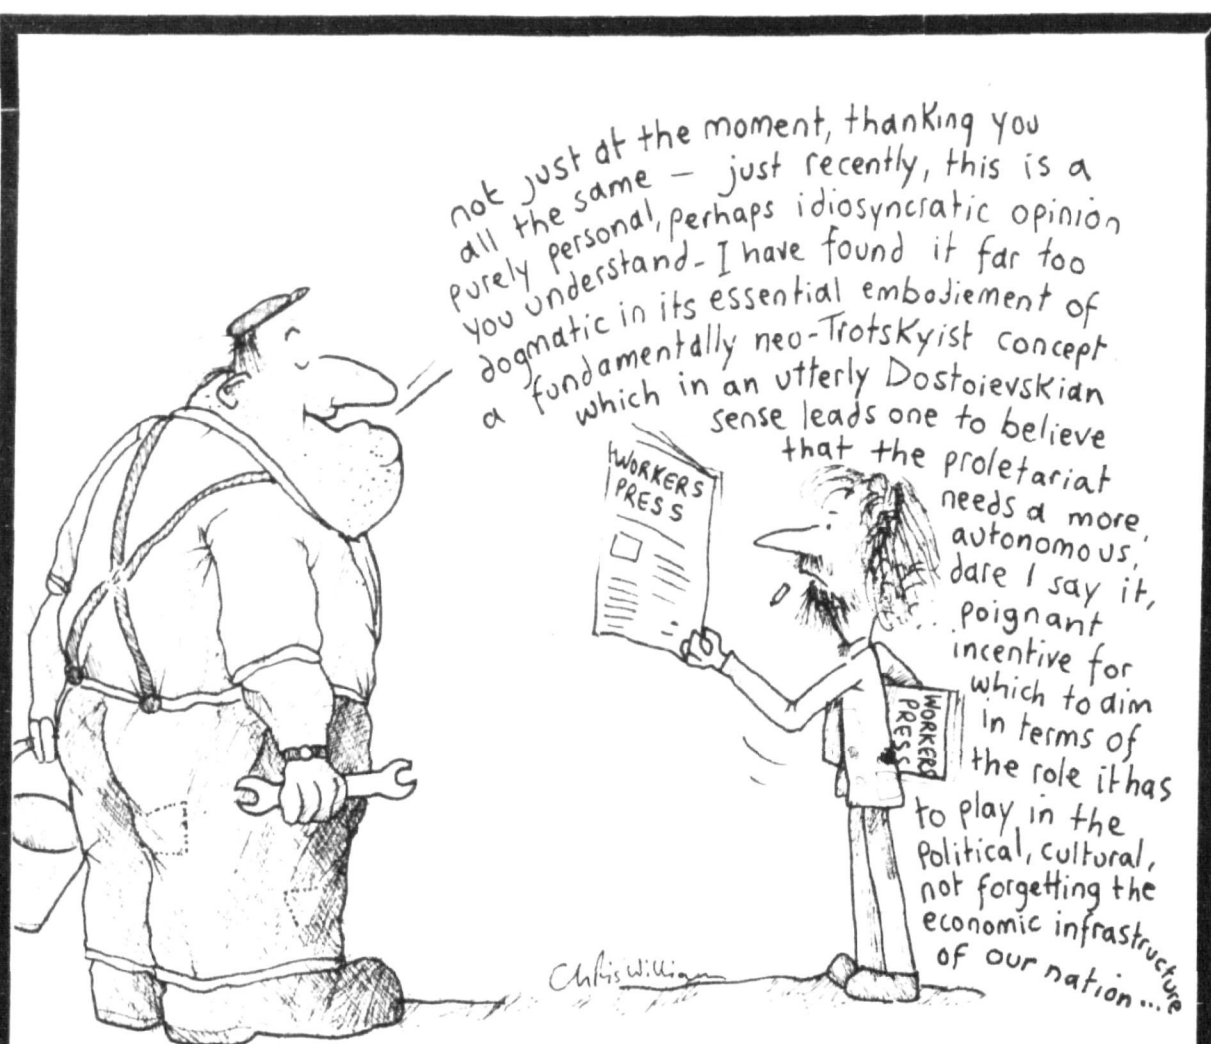 not just at the moment, thanking you
all the same — just recently, this is a
purely personal, perhaps idiosyncratic opinion
you understand - I have found it far too
dogmatic in its essential embodiement of
a fundamentally neo-Trotskyist concept
which in an utterly Dostoievskian
sense leads one to believe
that the proletariat
needs a more,
autonomous,
dare I say it,
poignant
incentive for
which to aim
in terms of
the role it has
to play in the
Political, cultural,
not forgetting the
economic infrastructure
of our nation...
WORKERS
PRESS
WORKERS
PRESS
Chris William